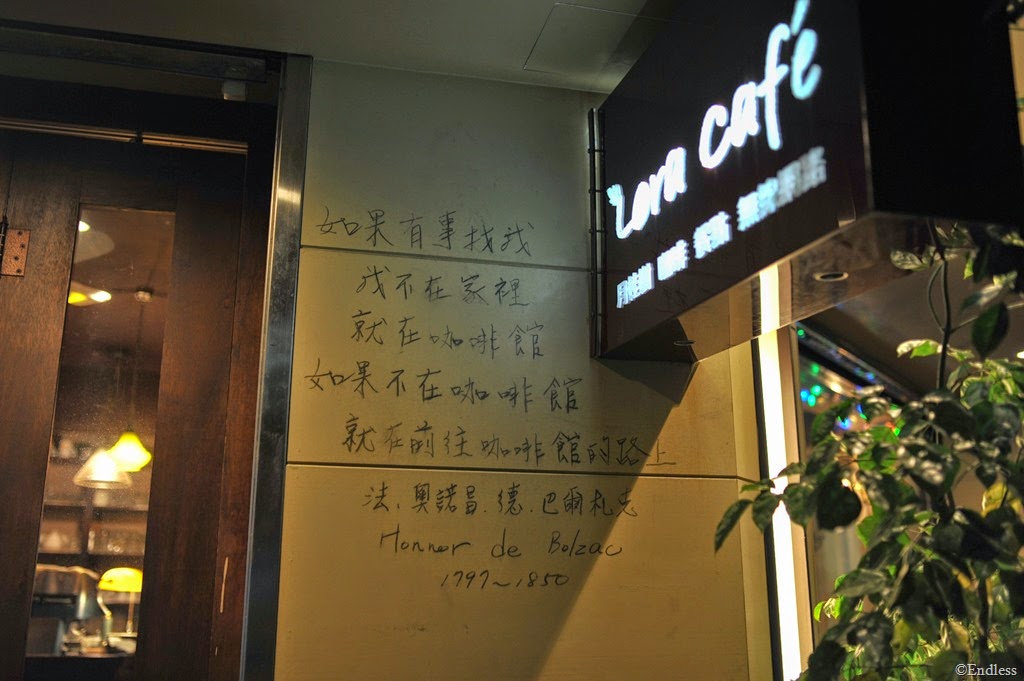 如果有事找我
我不在家裡
就在咖啡館
如果不在咖啡館
就在前往咖啡館的路上
法.奧諾昌.德.巴爾札克
Honnor de Bolzac
1797~1850
Lora café
咖啡 無線網路
©Endless